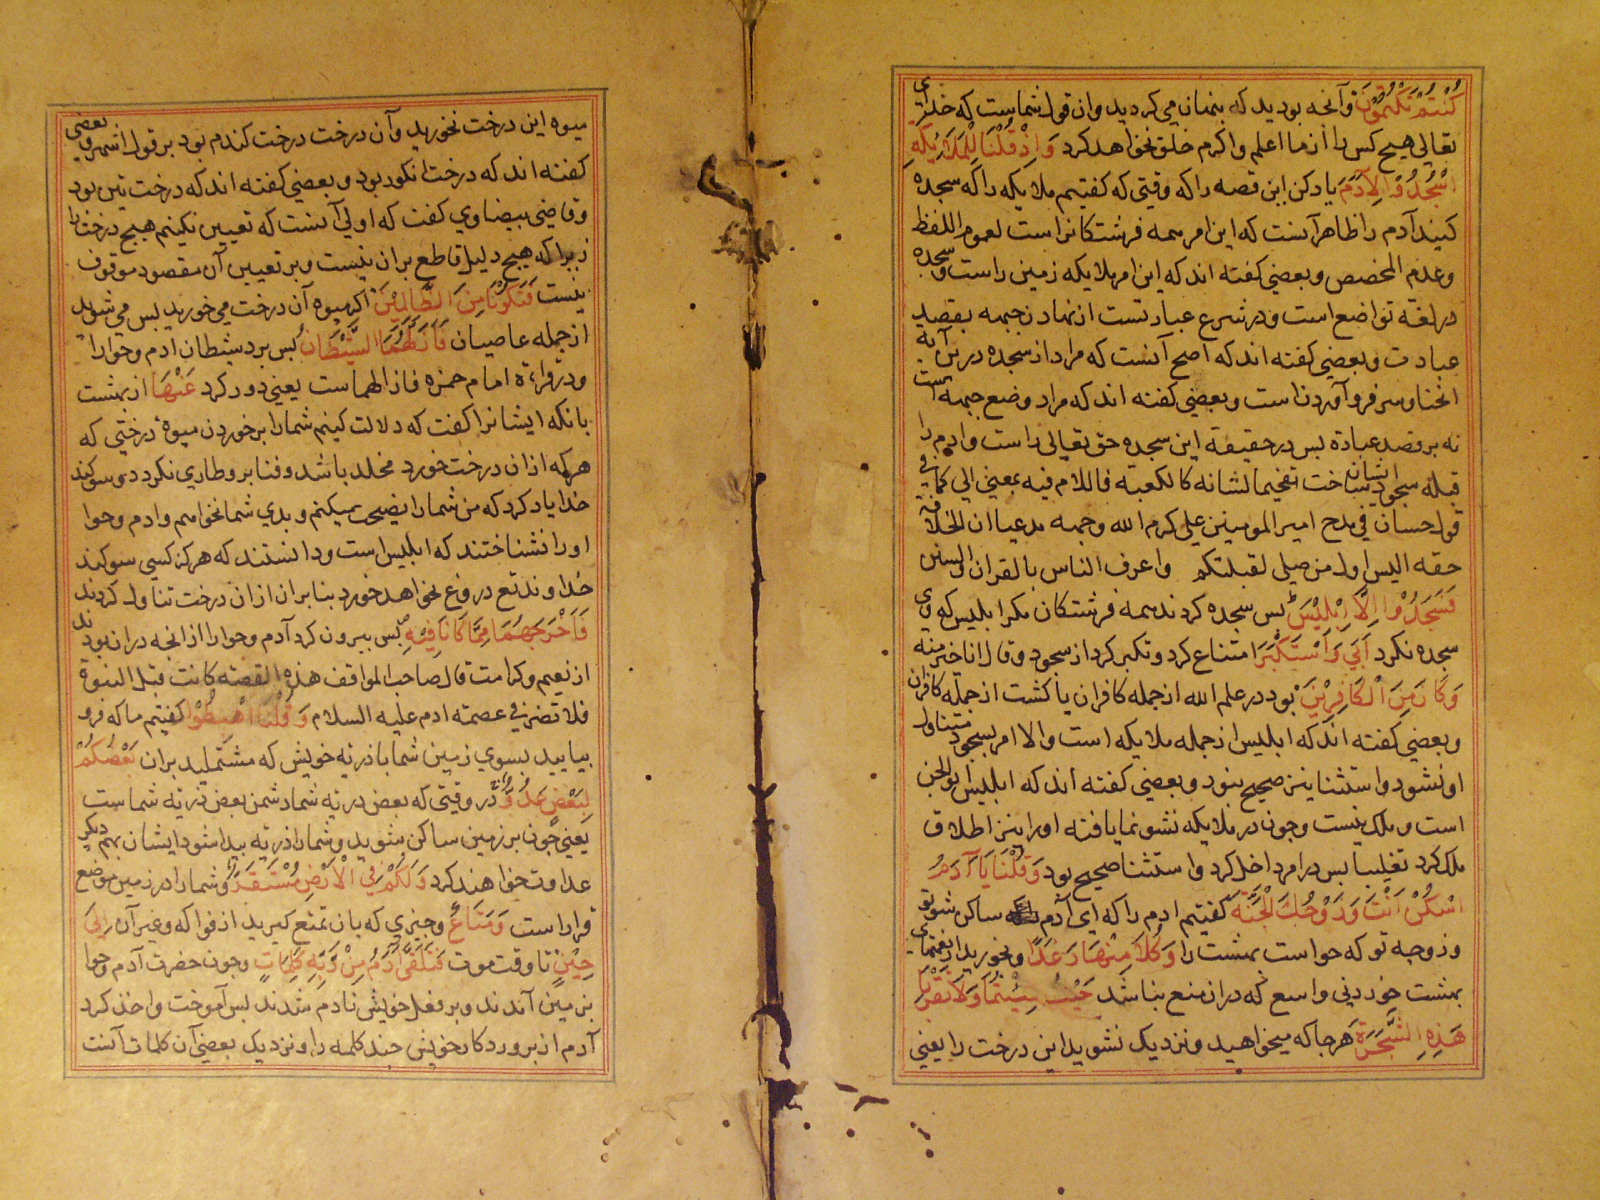 كُنْتُمْ تَكْتُمُوْنَ وآنچه بوديد كه پنهان مي كرديد وان قول شماست كه خداي
تعالى هيچ كس را از ما اعلم واكرم خلق نخواهد كرد وَاِذْ قُلْنَا لِلْمَلٰئِكَةِ
اسْجُدُوْا لِاٰدَمَ ياد كن اين قصه را كه وقتي كه كفتيم ملايكه را كه سجده
كنيد آدم را ظاهر آنست كه اين امر همه فرشتكانرا است لعموم اللفظ
وعدم المخصص وبعضي كفته اند كه اين امر بملايكه زمين راست وسجده
در لغة تواضع است ودر شرع عبارتست از نهادن جبهه بقصد
عبادت وبعضي كفته اند كه اصح آنست كه مراد از سجده درين آية
انحنا وسر فرو آوردن است وبعضي كفته اند كه مراد وضع جبهه است
نه بر قصد عبادة پس در حقيقة اين سجده حق تعالى راست وادم را
قبله سجود ايشان ساخت تفخيما لشانه كالكعبة فاللام فيه بمعني الى كما في
قول حسان في مدح امير المومنين علي كرم الله وجهه مدعيا ان الخلافة
حقه اليس اول من صلى لقبلتكم واعرف الناس بالقران والسنن
فَسَجَدُوْا اِلَّا اِبْلِيْسَ پس سجده كردند همه فرشتكان مكر ابليس كه وي
سجده نكرد اَبٰى وَاسْتَكْبَرَ امتناع كرد وتكبر كرد از سجود وقال انا خير منه
وَكَانَ مِنَ الْكَافِرِيْنَ بود در علم الله از جمله كافران يا كشت از جمله كافران
وبعضي كفته اند كه ابليس از جمله ملايكه است والا امر بسجود متناول
او نشود واستثنا نيز صحيح نبود وبعضي كفته اند كه ابليس ابو الجن
است وملك نيست وچون در ملايكه نشو نما يافته اورا نيز اطلاق
ملك كرد تغليبا پس در امر داخل كرد واستثنا صحيح بود وَقُلْنَا يَا آدَمُ
اسْكُنْ اَنْتَ وَزَوْجُكَ الْجَنَّةَ كفتيم ادم را كه اي آدم ساكن شو تو
وزوجه تو كه حواست بهشت را وَكُلَا مِنْهَا رَغَدًا وبخوريد از نعمتهاي
بهشت خوردني واسع كه دران منع نباشد حَيْثُ شِئْتُمَا وَلَا تَقْرَبَا
هٰذِهِ الشَّجَرَةَ هر جا كه ميخواهيد ونزديك نشويد اين درخت را يعني
ميوه اين درخت نخوريد وآن درخت درخت كندم بود بر قول اشهر وبعضي
كفته اند كه درخت انكور بود وبعضي كفته اند كه درخت تين بود
وقاضي بيضاوي كفت كه اولى آنست كه تعيين نكنيم هيچ درخت را
زيرا كه هيچ دليل قاطع بران نيست وبر تعيين آن مقصود موقوف
نيست فَتَكُوْنَا مِنَ الظَّالِمِيْنَ اكر ميوه آن درخت مي خوريد پس مي شويد
از جمله عاصيان فَاَزَلَّهُمَا الشَّيْطَانُ پس برد شيطان ادم وحوارا
ودر قراءة امام حمزه فازالهماست يعني دور كرد عَنْهَا از بهشت
بانكه ايشانرا كفت كه دلالت كنيم شمارا بر خوردن ميوۀ درختي كه
هر كه ازان درخت خورد مخلد باشد وفنا برو طاري نكردد وسوكند
خدا ياد كرد كه من شمارا نصيحت ميكنم وبدي شما نخواهم وادم وحوا
اورا نشناختند كه ابليس است ودانستند كه هركز كسي سوكند
خداوند تع دروغ نخواهد خورد بنابران ازان درخت تناول كردند
فَاَخْرَجَهُمَا مِمَّا كَانَا فِيْهِ پس بيرون كرد آدم وحوارا از انچه دران بودند
از نعيم وكرامت قال صاحب المواقف هذه القصة كانت قبل النبوة
فلا تضر في عصمة ادم عليه السلام وَقُلْنَا اهْبِطُوْا كفتيم ما كه فرو
بياييد بسوي زمين شما با ذريه خويش كه مشتمليد بران بَعْضُكُمْ
لِبَعْضٍ عَدُوٌّ در وقتي كه بعض ذريه شما دشمن بعض ذريه شماست
يعني چون بر زمين ساكن شويد وشمارا ذريه پيدا شود ايشان بهم ديكر
عداوت خواهند كرد وَلَكُمْ فِي الْاَرْضِ مُسْتَقَرٌّ وشمارا در زمين موضع
قرار است وَمَتَاعٌ وچيزي كه بان تمتع كيريد از فواكه وغير آن اِلٰى
حِيْنٍ تا وقت موت فَتَلَقّٰى آدَمُ مِنْ رَبِّهِ كَلِمَاتٍ وچون حضرت آدم وحوا
بزمين آمدند وبر فعل خويش نادم شدند پس آموخت واخذ كرد
آدم از پروردكار خويش چند كلمه را ونزديك بعضي آن كلمات آنست